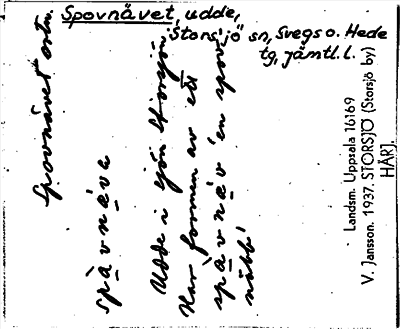 Spovnävet, udde,
Storsjö sn, Svegs o. Hede
tg, Jämtl. l.
Spovnävet
spåvnäva
Udde i sjön Storsjön
Har formen av ett
spåvnäv 'en spov
näbb'
Landsm. Uppsala 16169
V. Jansson. 1937. STORSJÖ (Storsjö by)
HÄRJ.